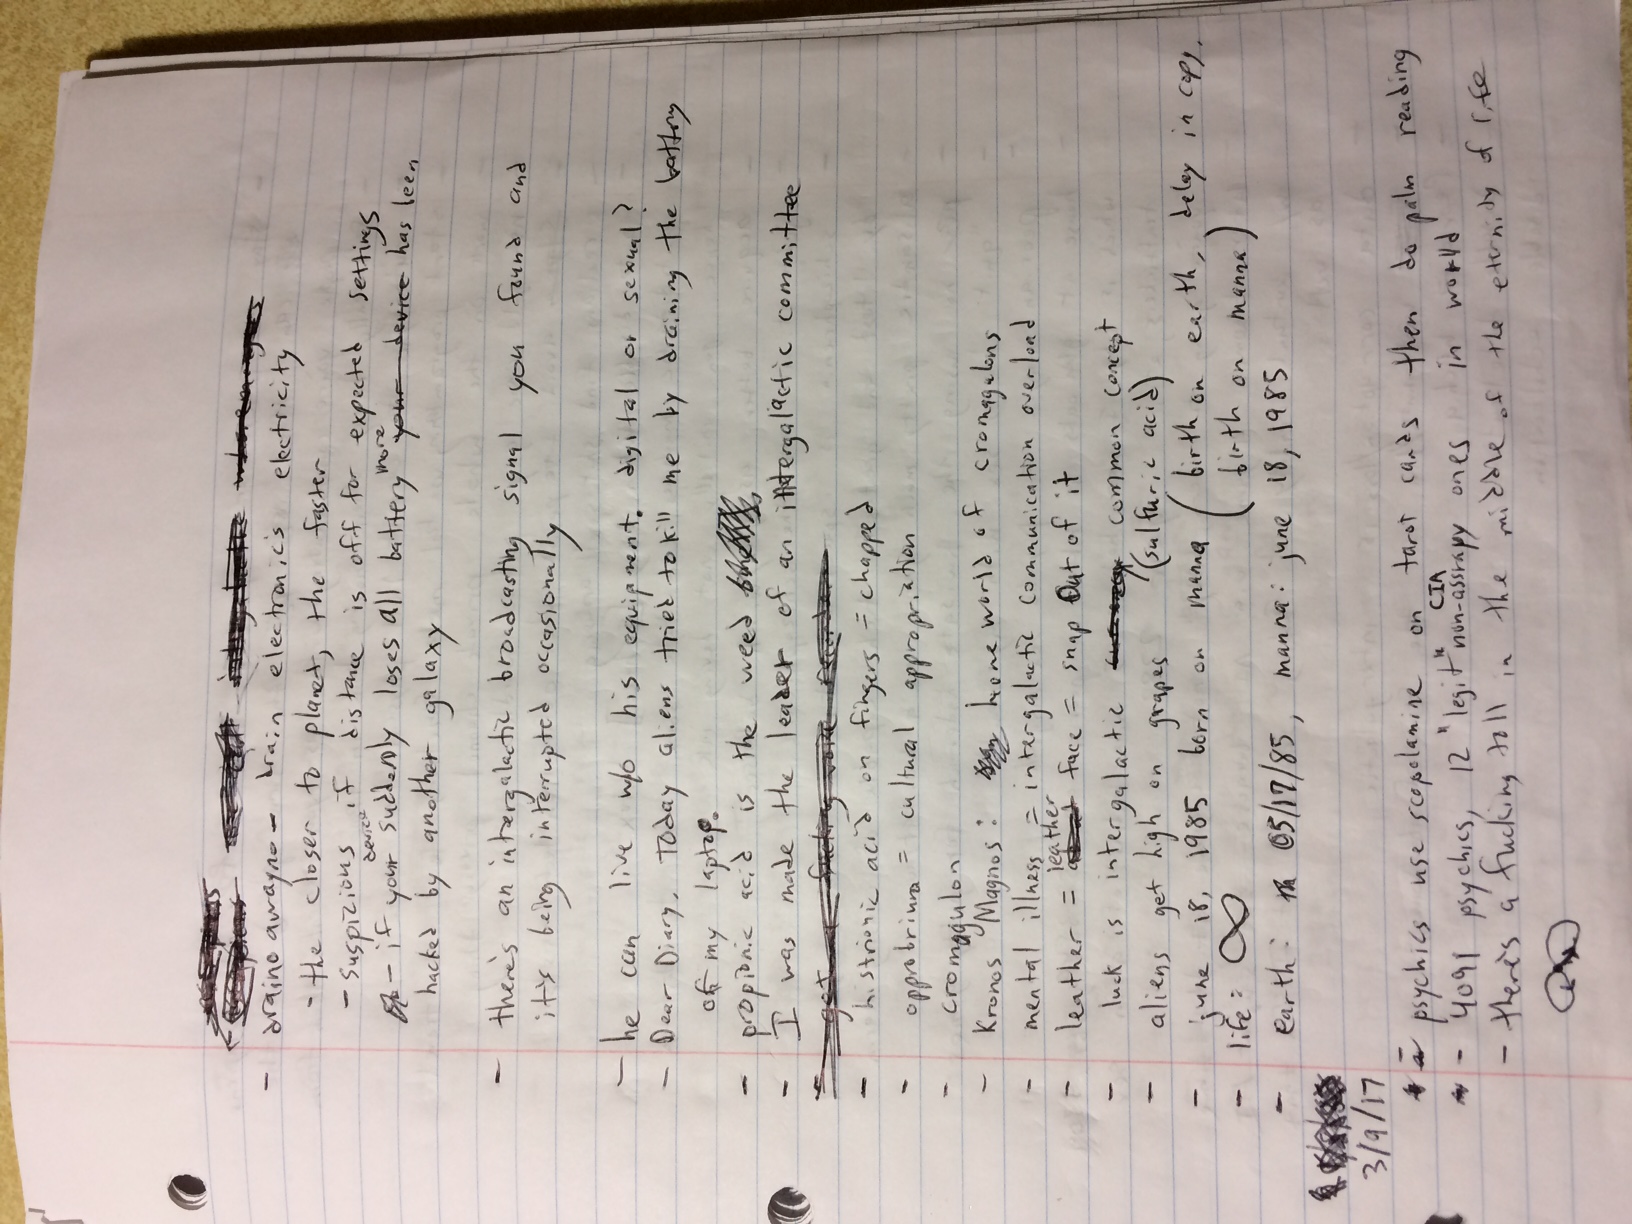 - draino awayno - drain electronic's electricity
- the closer to planet, the faster
- suspizious if distance is off for expected settings
- if your device suddenly loses all battery more your device has been
hacked by another galaxy
- there's an intergalactic broadcasting signal you found and
it's being interrupted occasionally
- he can live w/o his equipment. digital or sexual?
- Dear Diary, Today aliens tried to kill me by draining the battery
of my laptop.
- propionic acid is the weed
- I was made the leader of an intergalactic committee
- get a fucking voice recorder
- histrionic acid on fingers = chapped
- opprobrium = cultural appropriation
- cromagulon
- Kronos Magnos: home world of cromagulons
- mental illness = intergalactic communication overload
- leather = leather face = snap out of it
- luck is intergalactic common concept
- aliens get high on grapes (sulfuric acid)
- june 18, 1985 born on manna (birth on earth, delay in copy,
- life: ∞ birth on manna)
- earth: 05/17/85, manna: june 18, 1985
3/9/17
- psychics use scopolamine on tarot cards then do palm reading
- 4091 psychics, 12 "legit" non-CIA assrapy ones in world
- there's a fucking toll in the middle of the eternity of life
∞